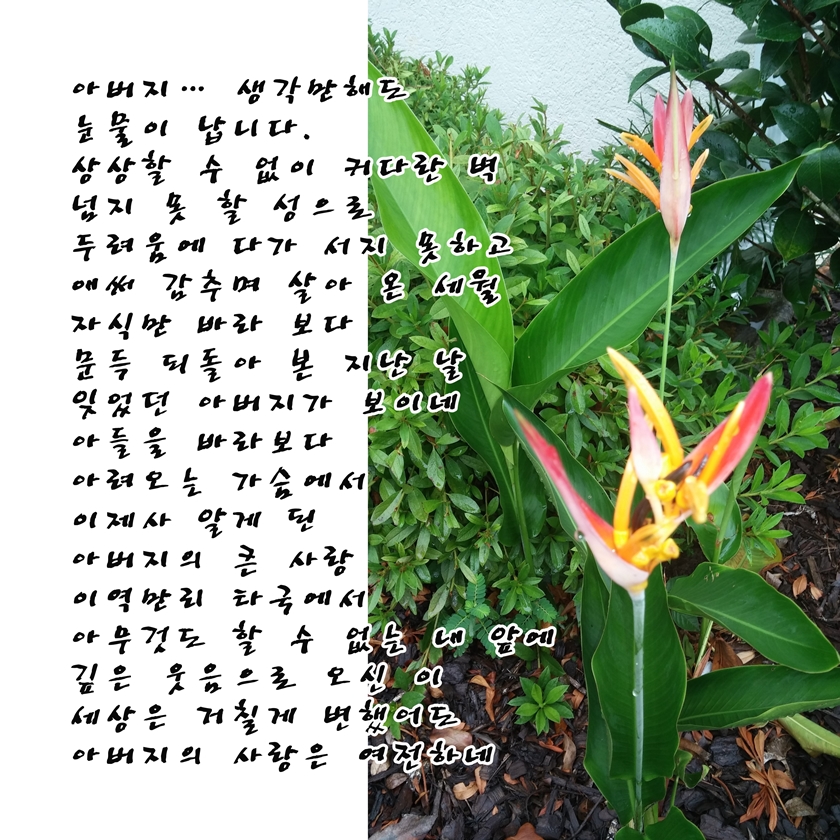 아버지… 생각만해도
눈물이 납니다.
상상할 수 없이 커다란 벽
넘지 못 할 성으로
두려움에 다가 서지 못하고
애써 감추며 살아 온 세월
자식만 바라 보다
문득 뒤돌아 본 지난 날
잊었던 아버지가 보이네
아들을 바라보다
아려오는 가슴에서
이제사 알게 된
아버지의 큰 사랑
이역만리 타국에서
아무것도 할 수 없는 내 앞에
깊은 웃음으로 오신 이
세상은 거칠게 변했어도
아버지의 사랑은 여전하네